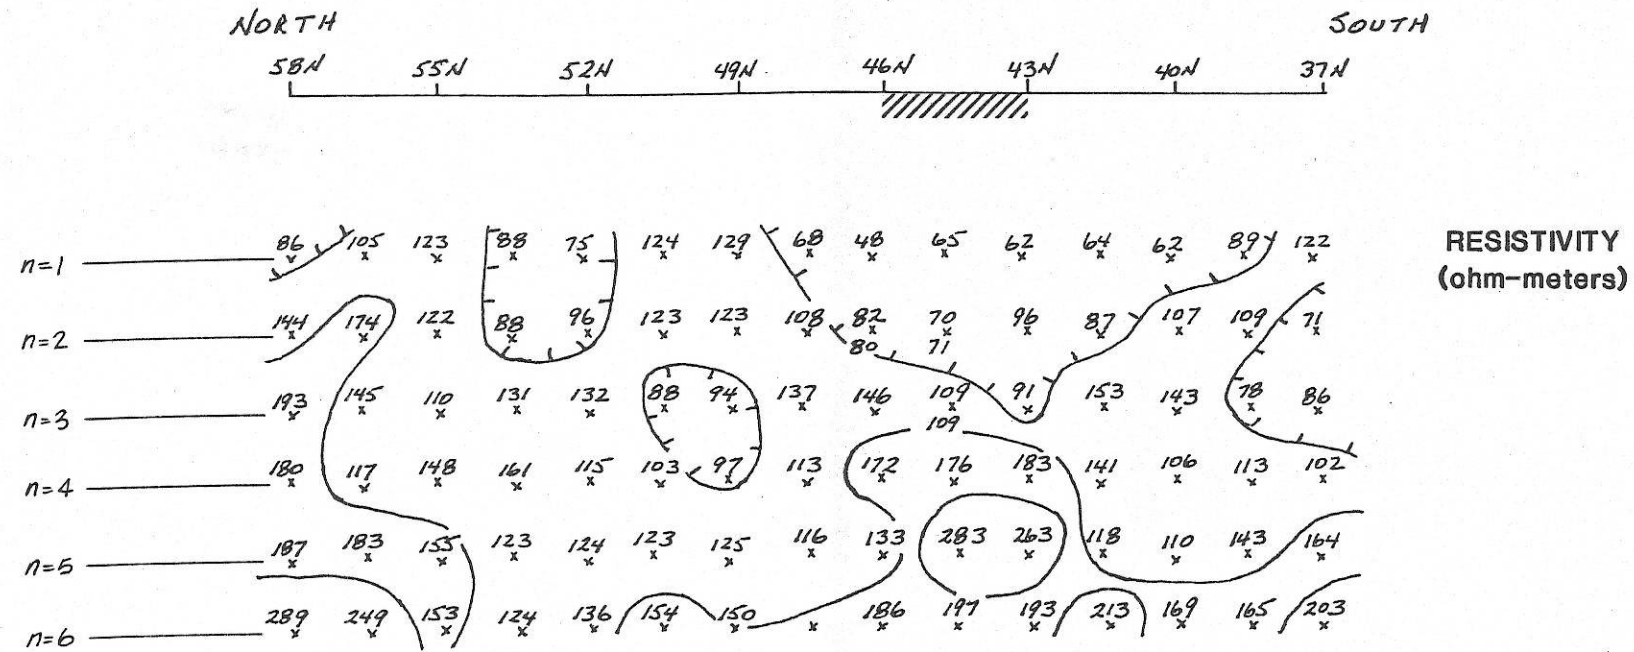 NORTH SOUTH
58N 55N 52N 49N 46N 43N 40N 37N
n=1 86 105 123 88 75 124 129 68 48 65 62 64 62 89 122
RESISTIVITY
(ohm-meters)
n=2 144 174 122 88 96 123 123 108 82 70 96 87 107 109 71
80 71
n=3 193 145 110 131 132 88 94 137 146 109 91 153 143 78 86
109
n=4 180 117 148 161 115 103 97 113 172 176 183 141 106 113 102
n=5 187 183 155 123 124 123 125 116 133 283 263 118 110 143 164
n=6 289 249 153 124 136 154 150 186 197 193 213 169 165 203